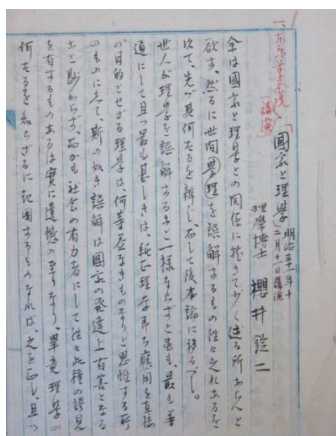 講演
「國家と理學」
明治三十一年十
二月十一日講演
理學博士 櫻井錠二
余は國家と理学との関係に就きて少しく述る所あらんと
欲す、然るに世間理学を誤解するもの往々之れあるを
以て、先づ其何たるを辯じ、而して後本論に移るべし。
世人が理学を誤解するは一様ならずと雖も、最も普
通にして且つ最も甚しきは、純正理学即ち應用を直接
の目的とせざる理学は、何等益なきものなりと思惟する所
のものにして、斯の如き誤解は國家の発達上有害となる
こと尠からず、而かも社会の有力者にして往々此種の誤見
を有するものあるは實に遺憾の至りなり、畢竟理学の
何たるを知らざるに起因するものなれば、之を正し、且つ